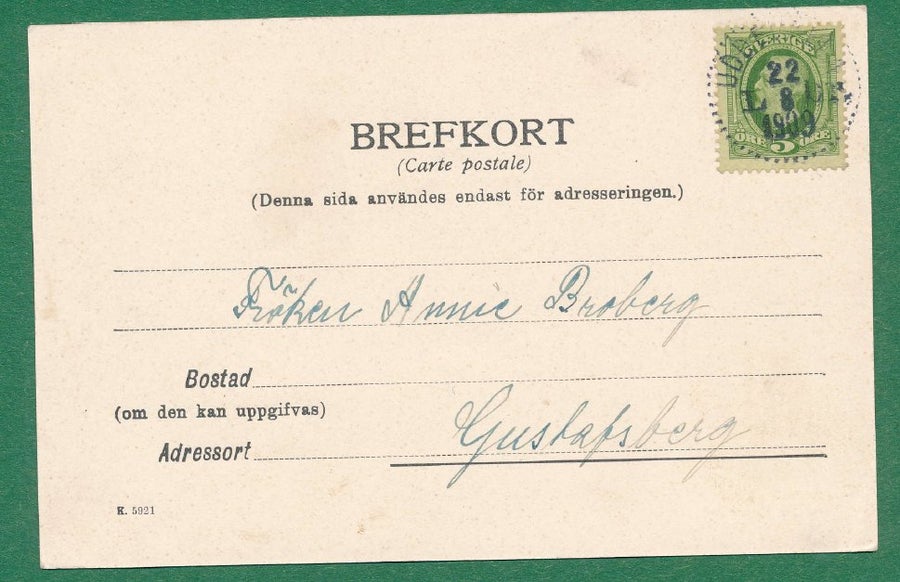 SVERIGE
22
8
1903
5
BREFKORT
(Carte postale)
(Denna sida användes endast för adresseringen.)
Fröken Annie Broberg
Bostad
(om den kan uppgifvas)
Gustafsberg
Adressort
K. 5921